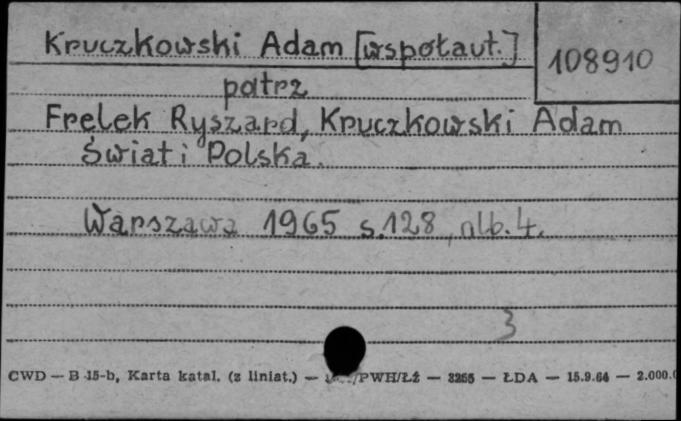 Kruczkowski Adam [współaut.]
108910
patrz
Frelek Ryszard, Kruczkowski Adam
Świat i Polska.
Warszawa 1965 s.128, nlb.4.
3
CWD — B 15-b, Karta katal. (z liniat.) — /PWH/ŁŻ — 3265 — ŁDA — 15.9.64 — 2.000.0